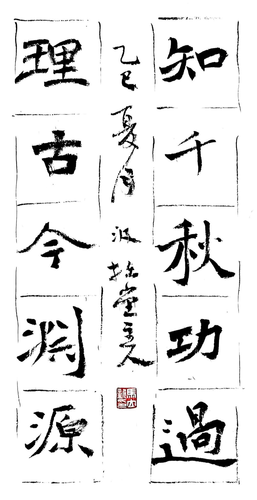 知千秋功過
理古今渊源
乙巳夏月 汲拙堂主人